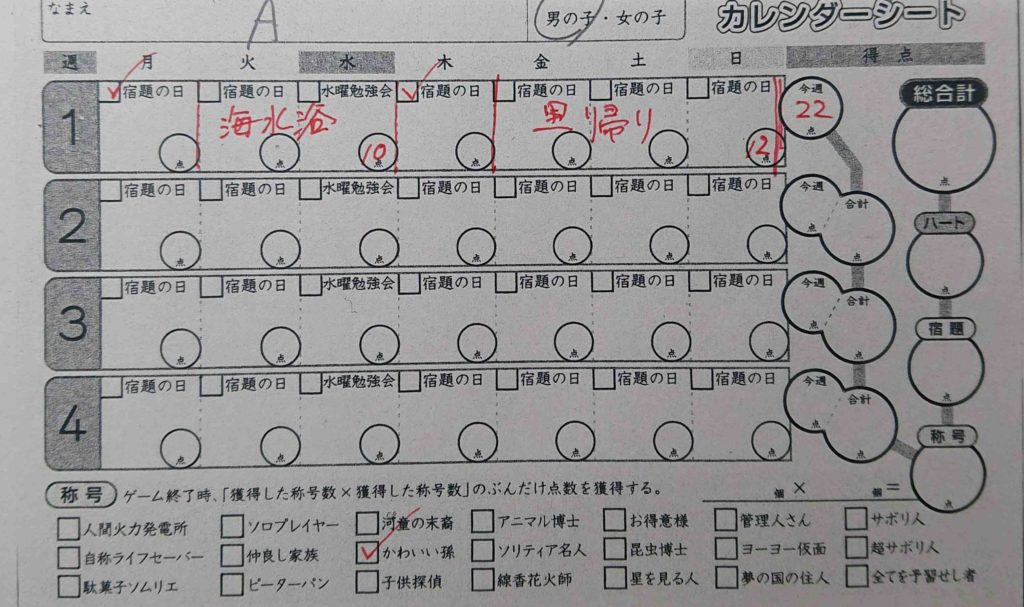 なまえ A 男の子・女の子 カレンダーシート
週 月 火 水 木 金 土 日 得点
1 宿題の日 宿題の日 水曜勉強会 宿題の日 宿題の日 宿題の日 宿題の日 今週 22 総合計
海水浴 里帰り
点 点 10点 点 点 点 12点 点
2 宿題の日 宿題の日 水曜勉強会 宿題の日 宿題の日 宿題の日 宿題の日 今週 合計 ハート
点 点 点 点 点 点 点 点 点 点
3 宿題の日 宿題の日 水曜勉強会 宿題の日 宿題の日 宿題の日 宿題の日 今週 合計 宿題
点 点 点 点 点 点 点 点 点 点
4 宿題の日 宿題の日 水曜勉強会 宿題の日 宿題の日 宿題の日 宿題の日 今週 合計 称号
点 点 点 点 点 点 点 点 点 点
称号 ゲーム終了時、「獲得した称号数×獲得した称号数」のぶんだけ点数を獲得する。 個 × 個 =
人間火力発電所 ソロプレイヤー 河童の末裔 アニマル博士 お得意様 管理人さん サボリ人
自称ライフセーバー 仲良し家族 かわいい孫 ソリティア名人 昆虫博士 ヨーヨー仮面 超サボリ人
駄菓子ソムリエ ピーターパン 子供探偵 線香花火師 星を見る人 夢の国の住人 全てを予習せし者